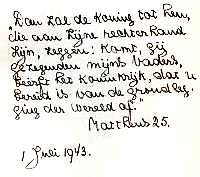 "Dan zal de Koning tot hen,
die aan Zijne rechterhand
zijn, zeggen: Komt, gij
gezegenden mijns Vaders,
beërft het Koninkrijk, dat u
bereid is van de grondleg-
ging der wereld af."
Mattheus 25.
1 Juli 1943.